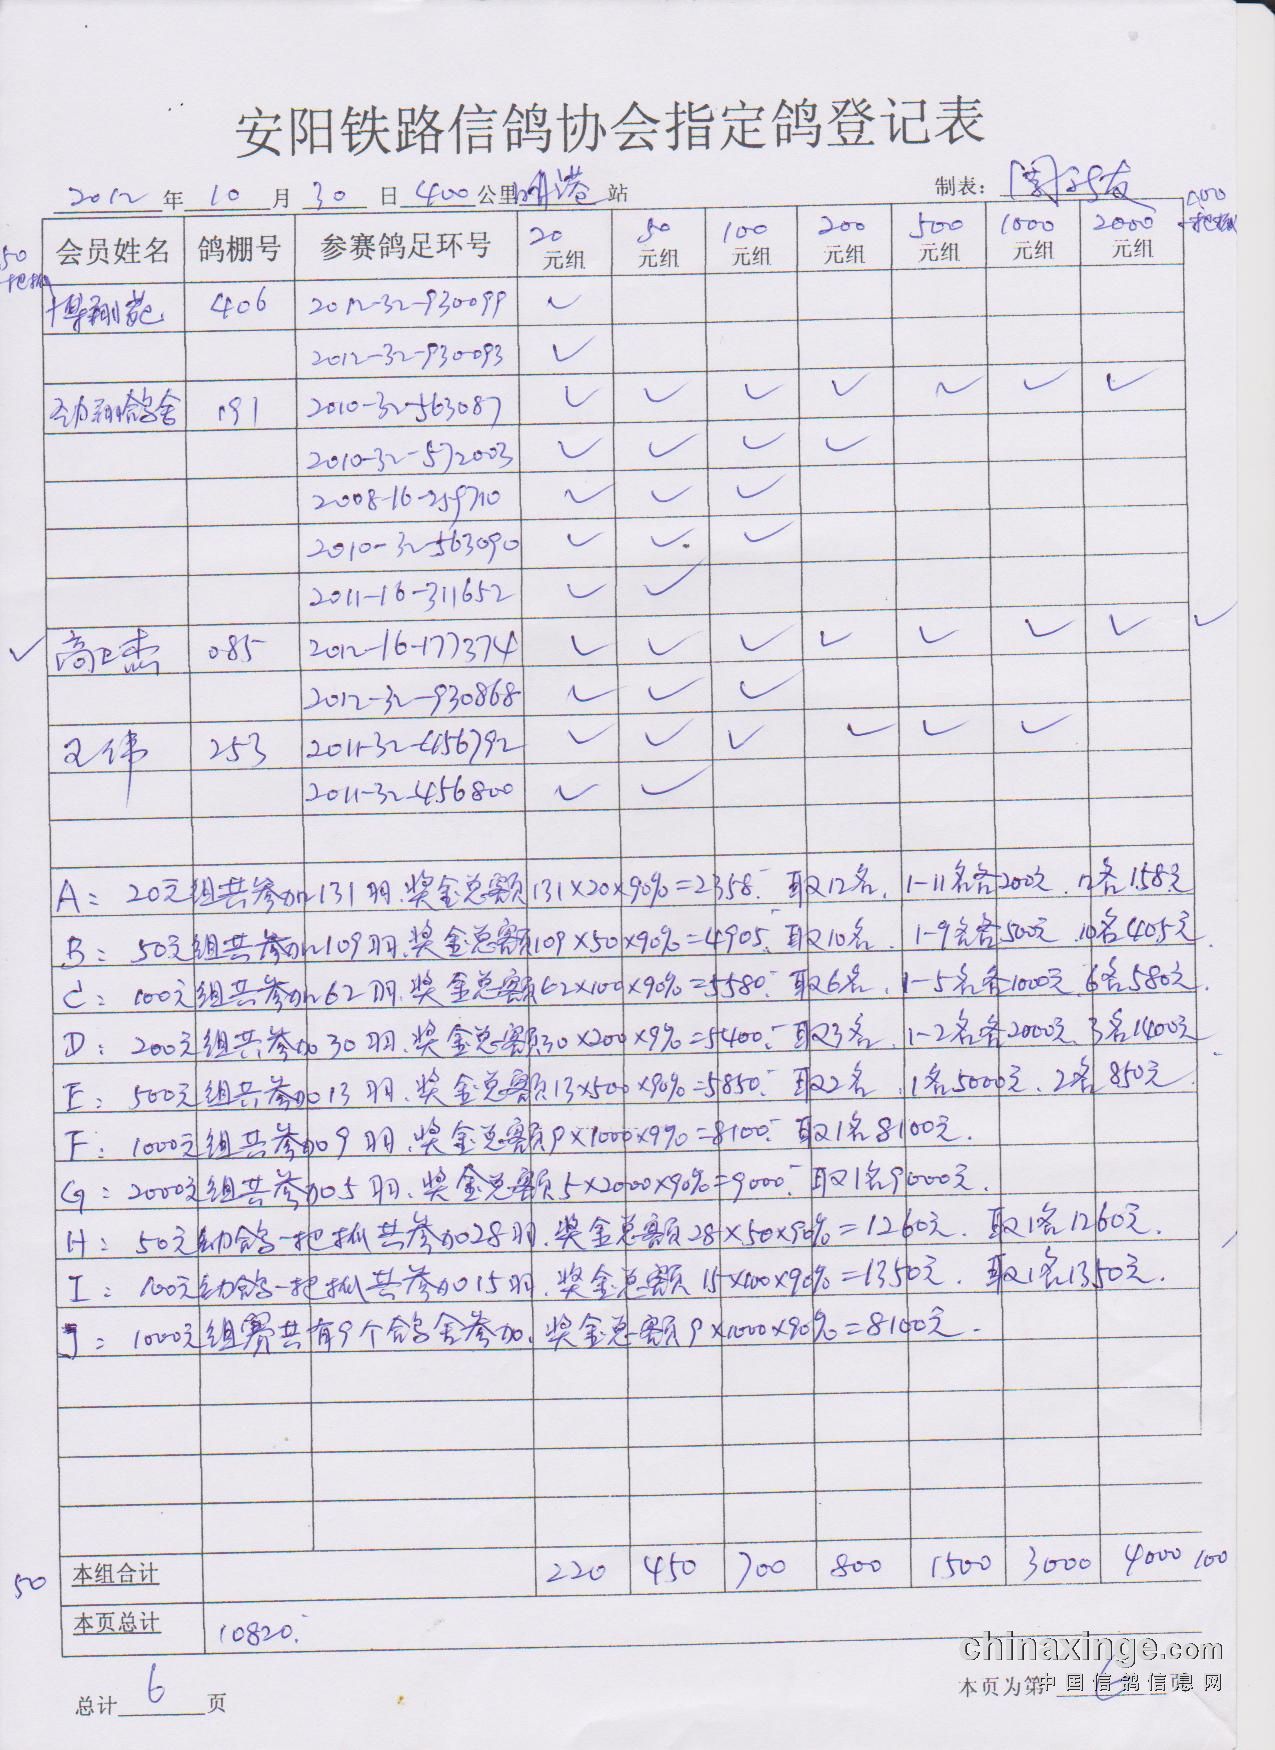 安阳铁路信鸽协会指定鸽登记表
2012年10月30日400公里明港站 制表:
会员姓名 鸽棚号 参赛鸽足环号 20元组 50元组 100元组 200元组 500元组 1000元组 2000元组
50一把抓 100一把抓
博翔苑 406 2012-32-930099 ✓
2012-32-930093 ✓
劲翔鸽舍 191 2010-32-563087 ✓ ✓ ✓ ✓ ✓ ✓ ✓
2010-32-572003 ✓ ✓ ✓ ✓
2008-16-259710 ✓ ✓ ✓
2010-32-563090 ✓ ✓ ✓
2011-16-311652 ✓ ✓
✓ 高卫杰 085 2012-16-177374 ✓ ✓ ✓ ✓ ✓ ✓ ✓ ✓
2012-32-930868 ✓ ✓ ✓
文伟 253 2011-32-456792 ✓ ✓ ✓ ✓ ✓ ✓
2011-32-456800 ✓ ✓
A: 20元组共参加131羽.奖金总额131×20×90%=2358.- 取12名. 1-11名各200元. 12名158元
B: 50元组共参加109羽.奖金总额109×50×90%=4905.- 取10名. 1-9名各500元. 10名405元.
C: 100元组共参加62羽.奖金总额62×100×90%=5580.- 取6名. 1-5名各1000元. 6名580元.
D: 200元组共参加30羽.奖金总额30×200×9%=5400.- 取3名. 1-2名各2000元. 3名1400元
E: 500元组共参加13羽.奖金总额13×500×90%=5850.- 取2名. 1名5000元. 2名850元.
F: 1000元组共参加9羽.奖金总额9×1000×9%=8100.- 取1名8100元.
G: 2000元组共参加5羽.奖金总额5×2000×90%=9000.- 取1名9000元.
H: 50元幼鸽一把抓共参加28羽.奖金总额28×50×90%=1260元. 取1名1260元.
I: 100元幼鸽一把抓共参加15羽.奖金总额15×100×90%=1350元. 取1名1350元.
J: 1000元组赛共有9个鸽舍参加.奖金总额9×1000×90%=8100元.
50 本组合计 220 450 700 800 1500 3000 4000 100
本页总计 10820.-
chinaxinge.com
中国信鸽信息网
总计6页 本页为第6